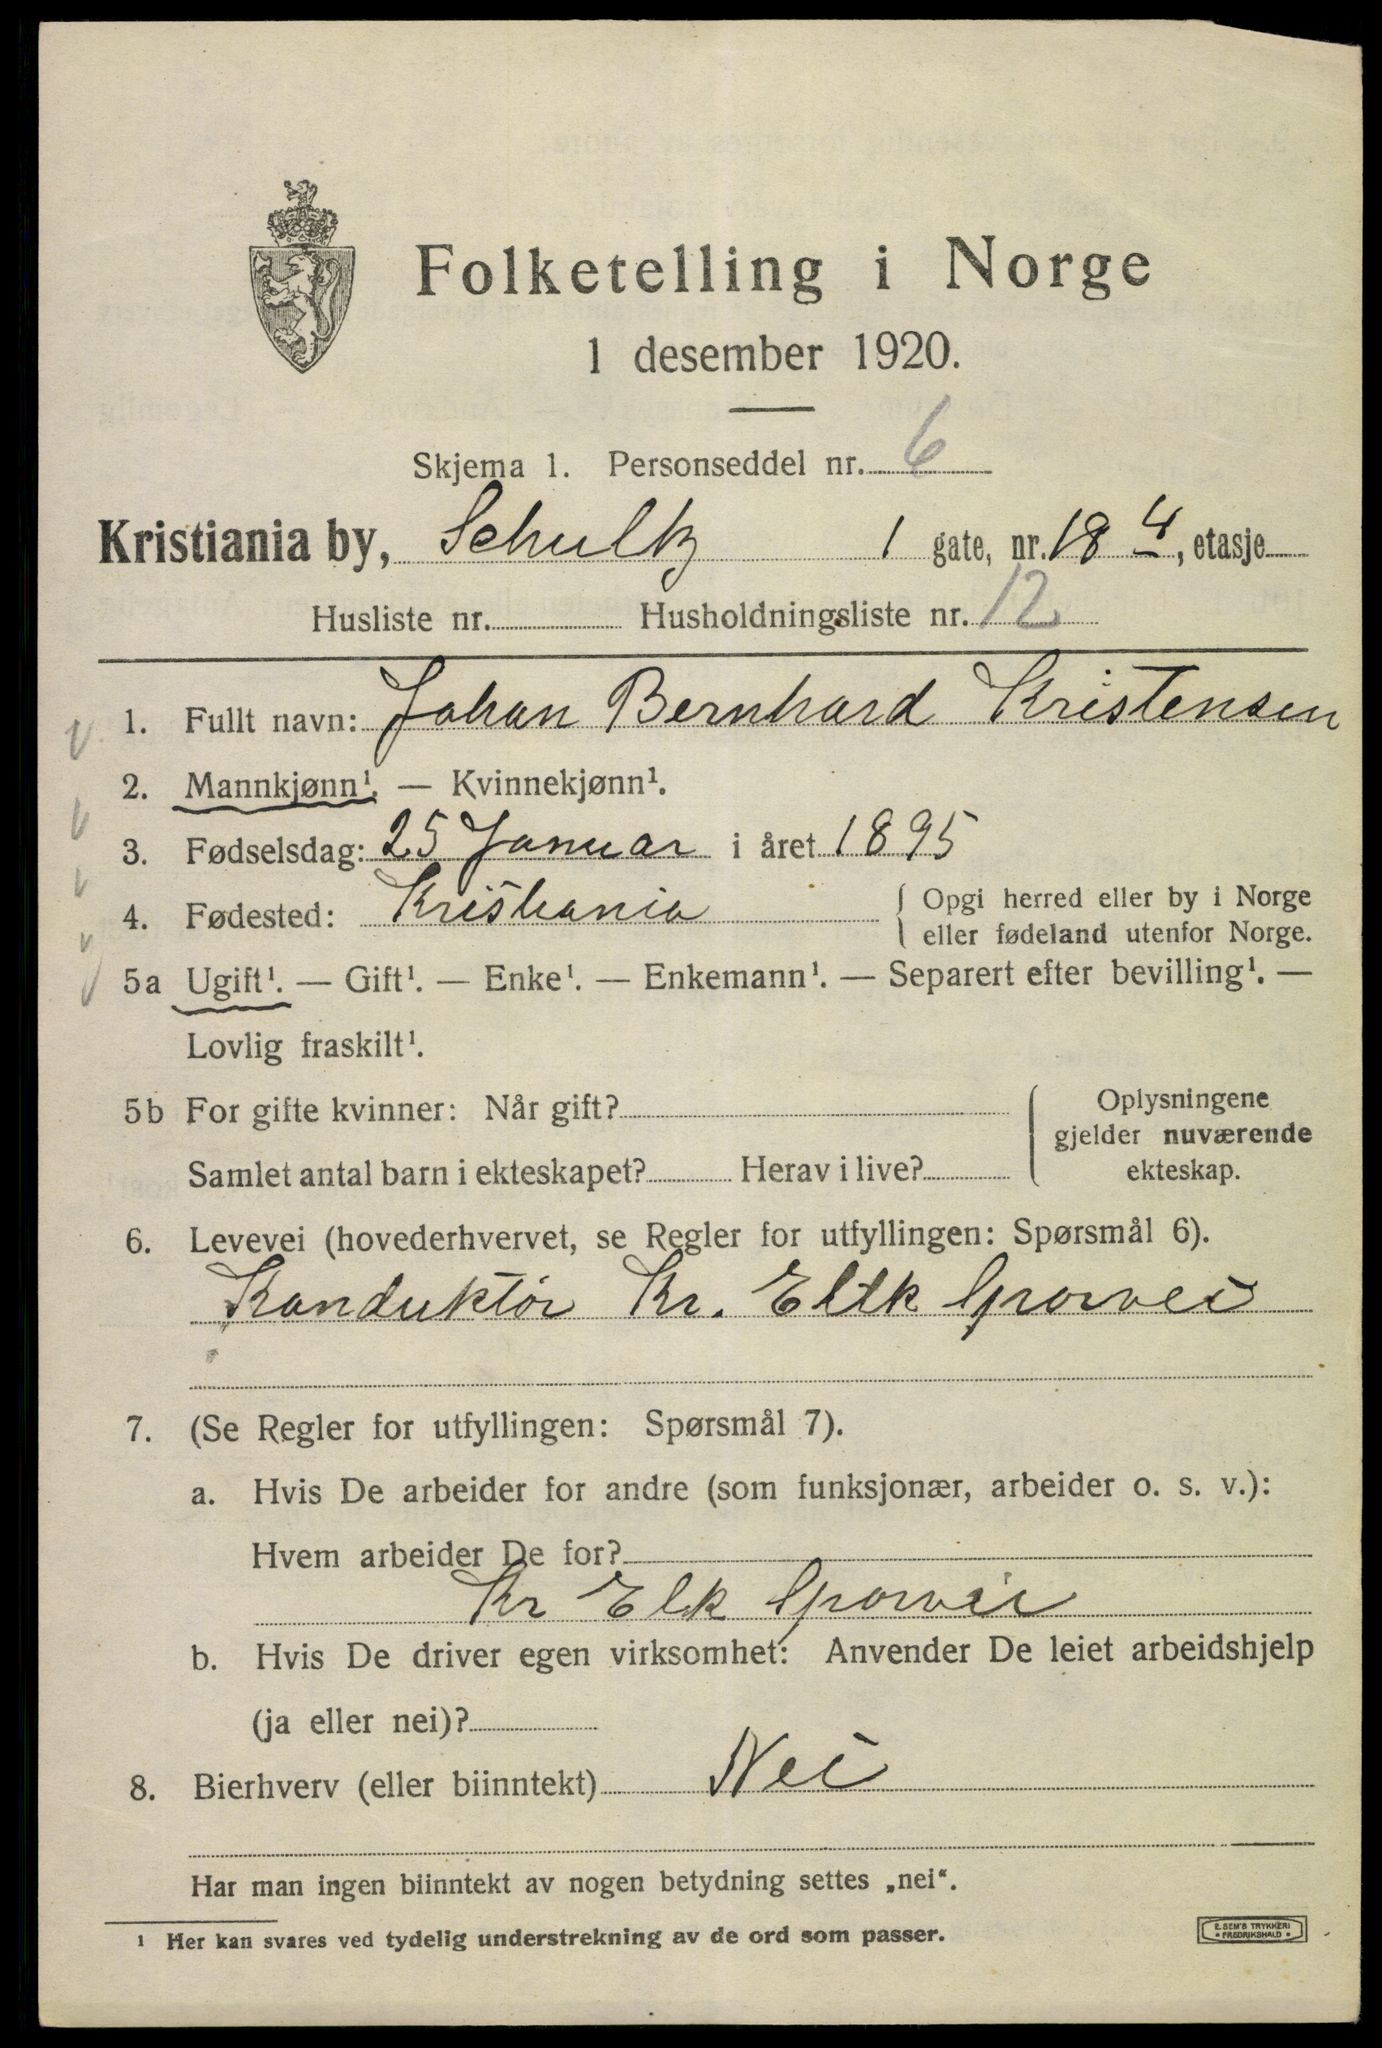 Folketelling i Norge
1 desember 1920.
Skjema 1. Personseddel nr. 6
Kristiania by, Schultz 1 gate, nr. 18 4, etasje
Husliste nr. Husholdningsliste nr. 12
1. Fullt navn: Johan Bernhard Kristensen
2. Mannkjønn¹. — Kvinnekjønn¹.
3. Fødselsdag: 25 Januar i året 1895
4. Fødested: Kristiania { Opgi herred eller by i Norge
eller fødeland utenfor Norge.
5a Ugift¹. — Gift¹. — Enke¹. — Enkemann¹. — Separert efter bevilling¹. —
Lovlig fraskilt¹.
5b For gifte kvinner: Når gift? { Oplysningene
gjelder nuværende
Samlet antal barn i ekteskapet? Herav i live? ekteskap.
6. Levevei (hovederhvervet, se Regler for utfyllingen: Spørsmål 6).
Konduktör Kr. Eltk Sporvei
7. (Se Regler for utfyllingen: Spørsmål 7).
a. Hvis De arbeider for andre (som funksjonær, arbeider o. s. v.):
Hvem arbeider De for?
Kr Elk Sporvei
b. Hvis De driver egen virksomhet: Anvender De leiet arbeidshjelp
(ja eller nei)?
8. Bierhverv (eller biinntekt) Nei
Har man ingen biinntekt av nogen betydning settes „nei“.
¹ Her kan svares ved tydelig understrekning av de ord som passer.
E. SEM'S TRYKKERI
• FREDRIKSHALD •